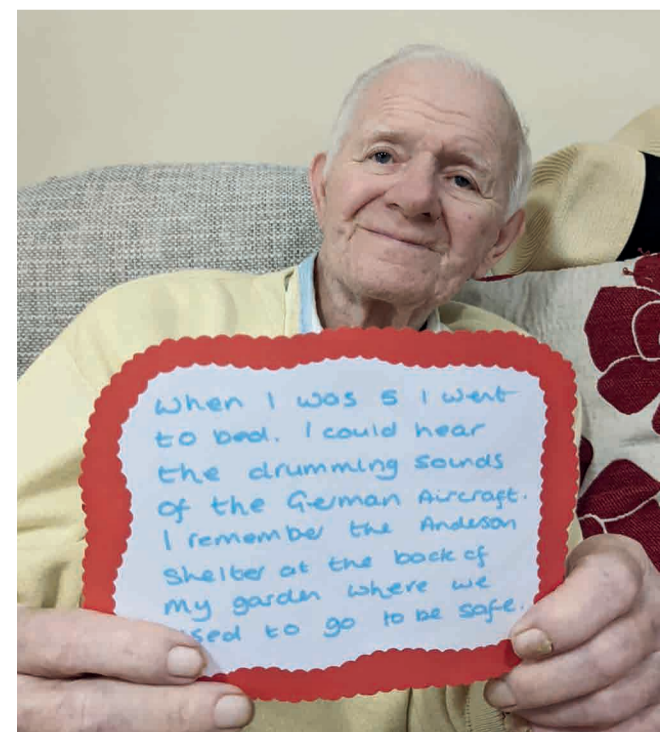 When I was 5 I went
to bed. I could hear
the drumming sounds
of the German Aircraft.
I remember the Anderson
Shelter at the back of
my garden where we
used to go to be safe.